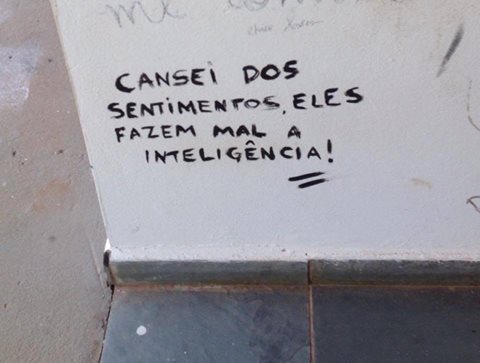 CANSEI DOS
SENTIMENTOS, ELES
FAZEM MAL A
INTELIGÊNCIA!